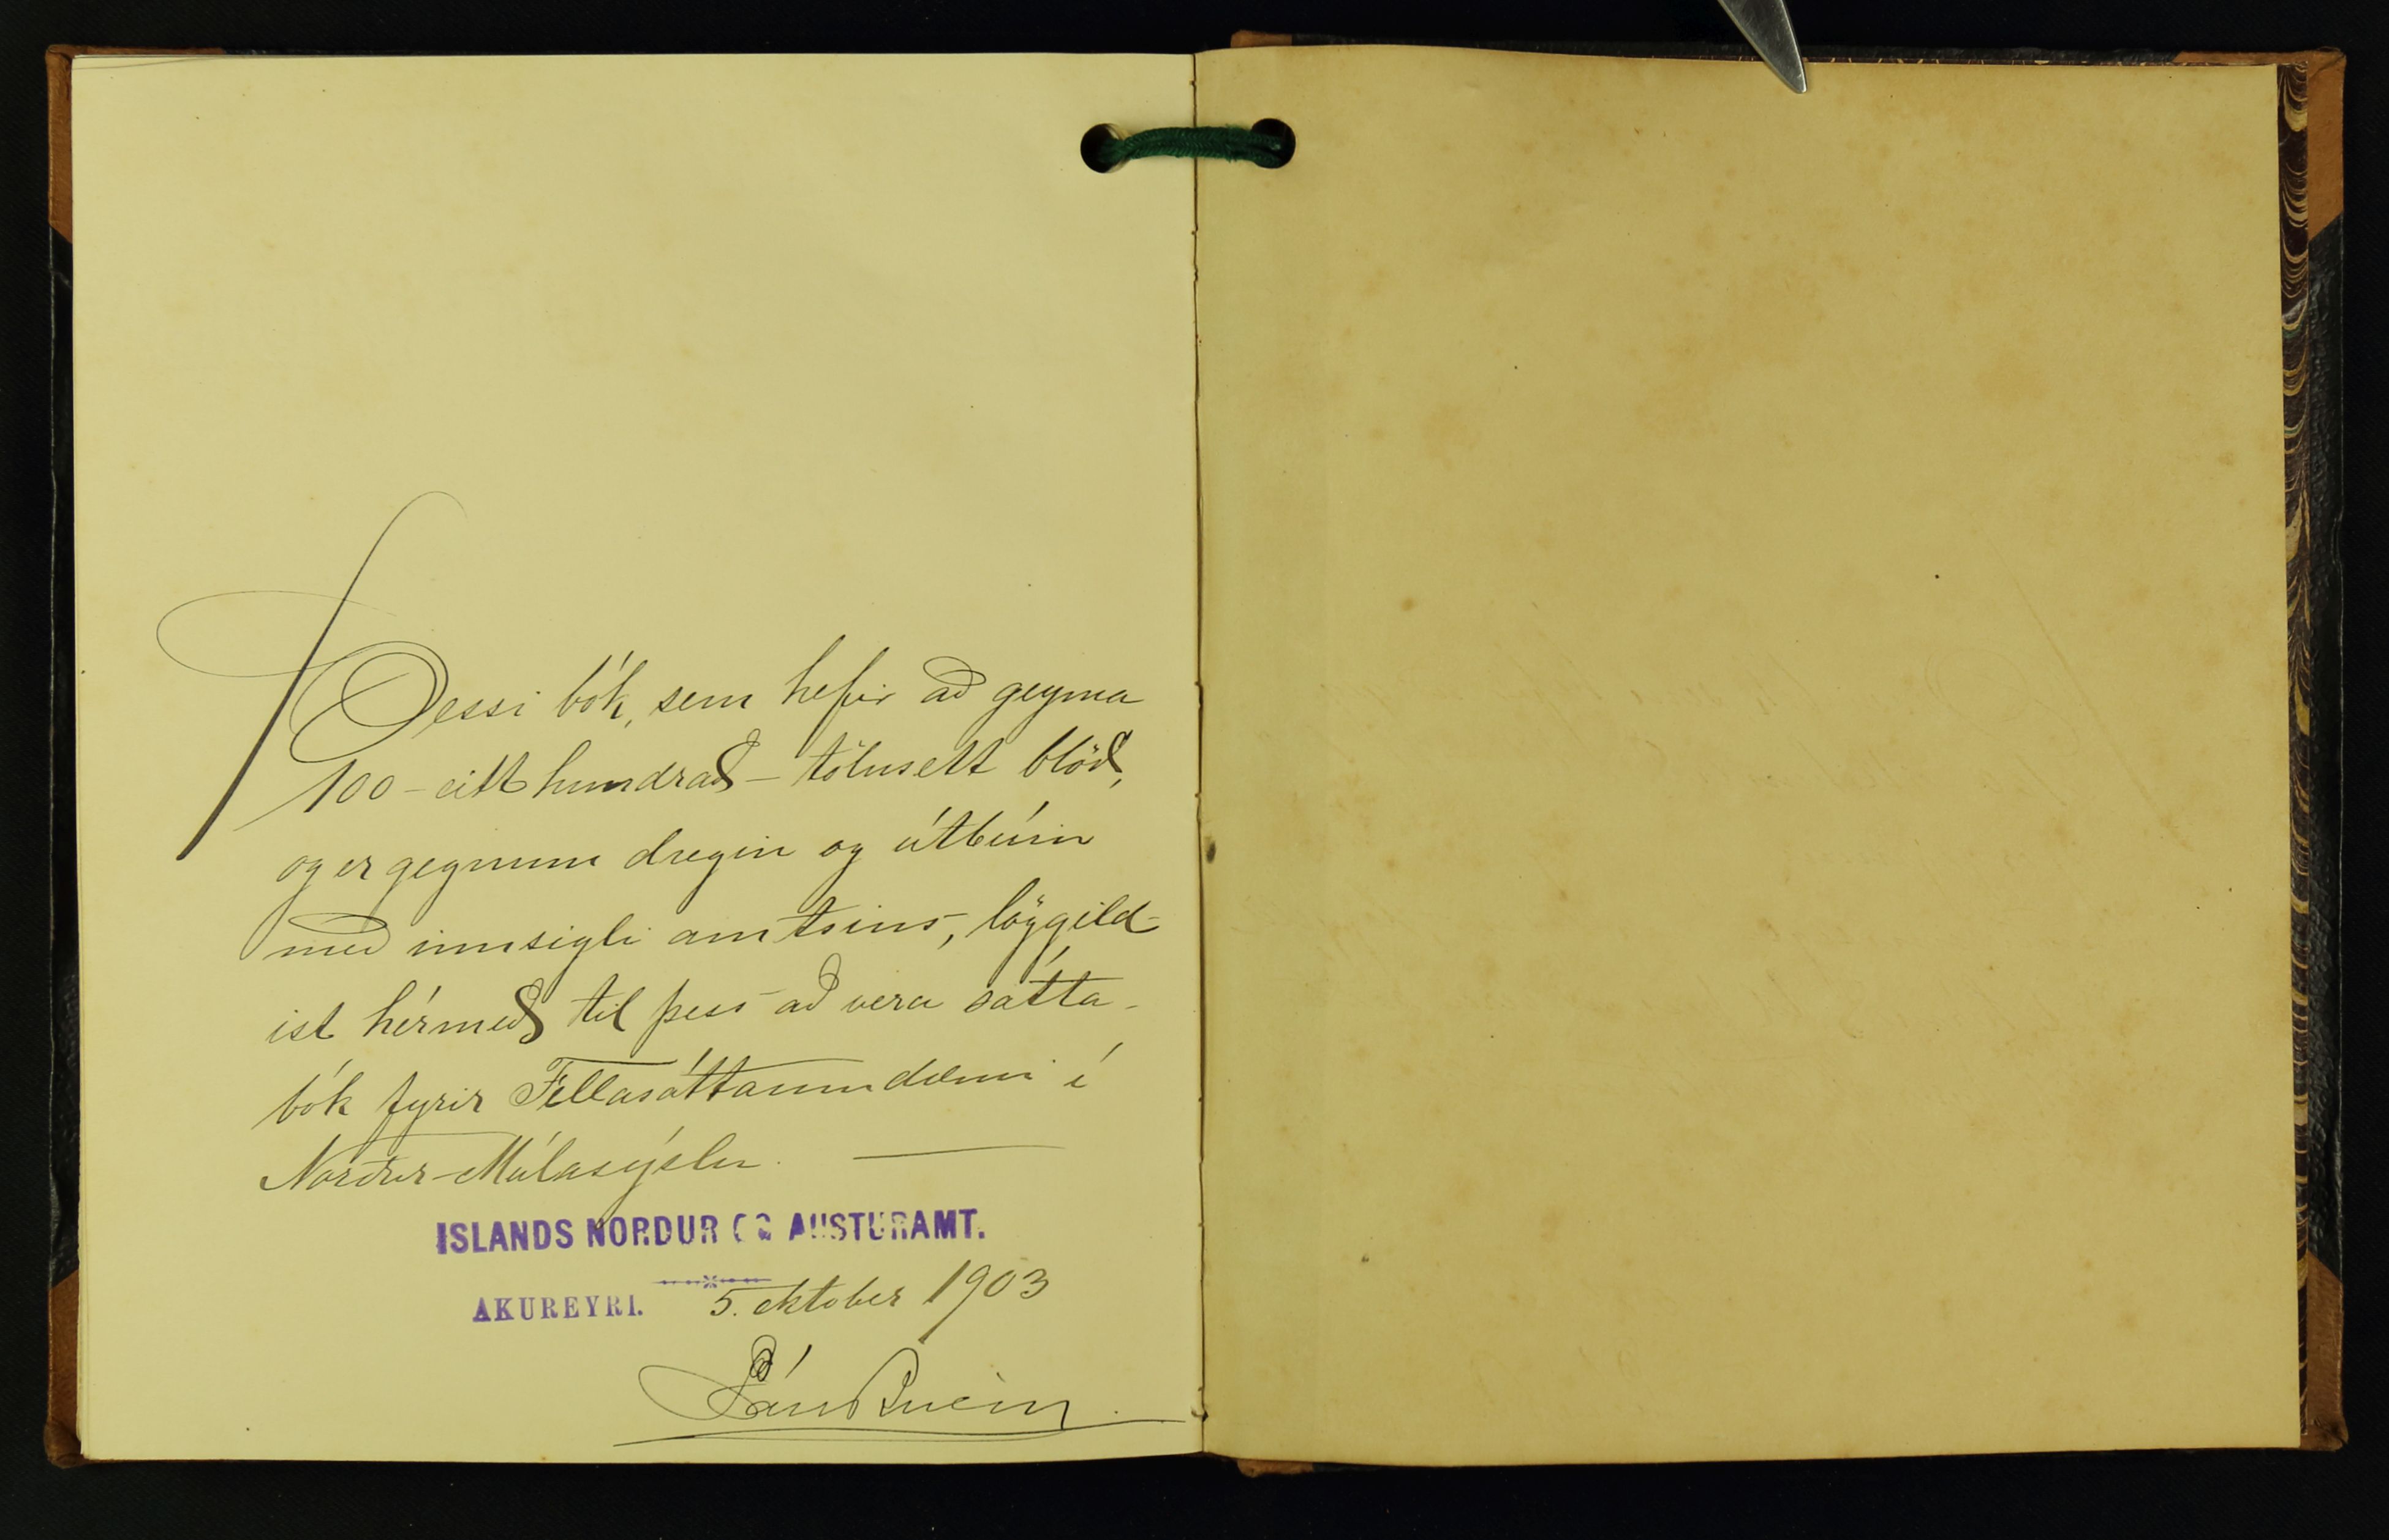 Þessi bók, sem hefir að geyma
100 - eitt hundrað - tölusett blöð,
og er gegnum dregin og útbúin
með innsigli amtsins, löggild-
ist hérmeð til þess að vera sátta-
bók fyrir Fellasáttaumdæmi í
Norður-Múlasýslu.
ISLANDS NORDUR OG AUSTURAMT.
AKUREYRI. 5. október 1903
Páll Briem